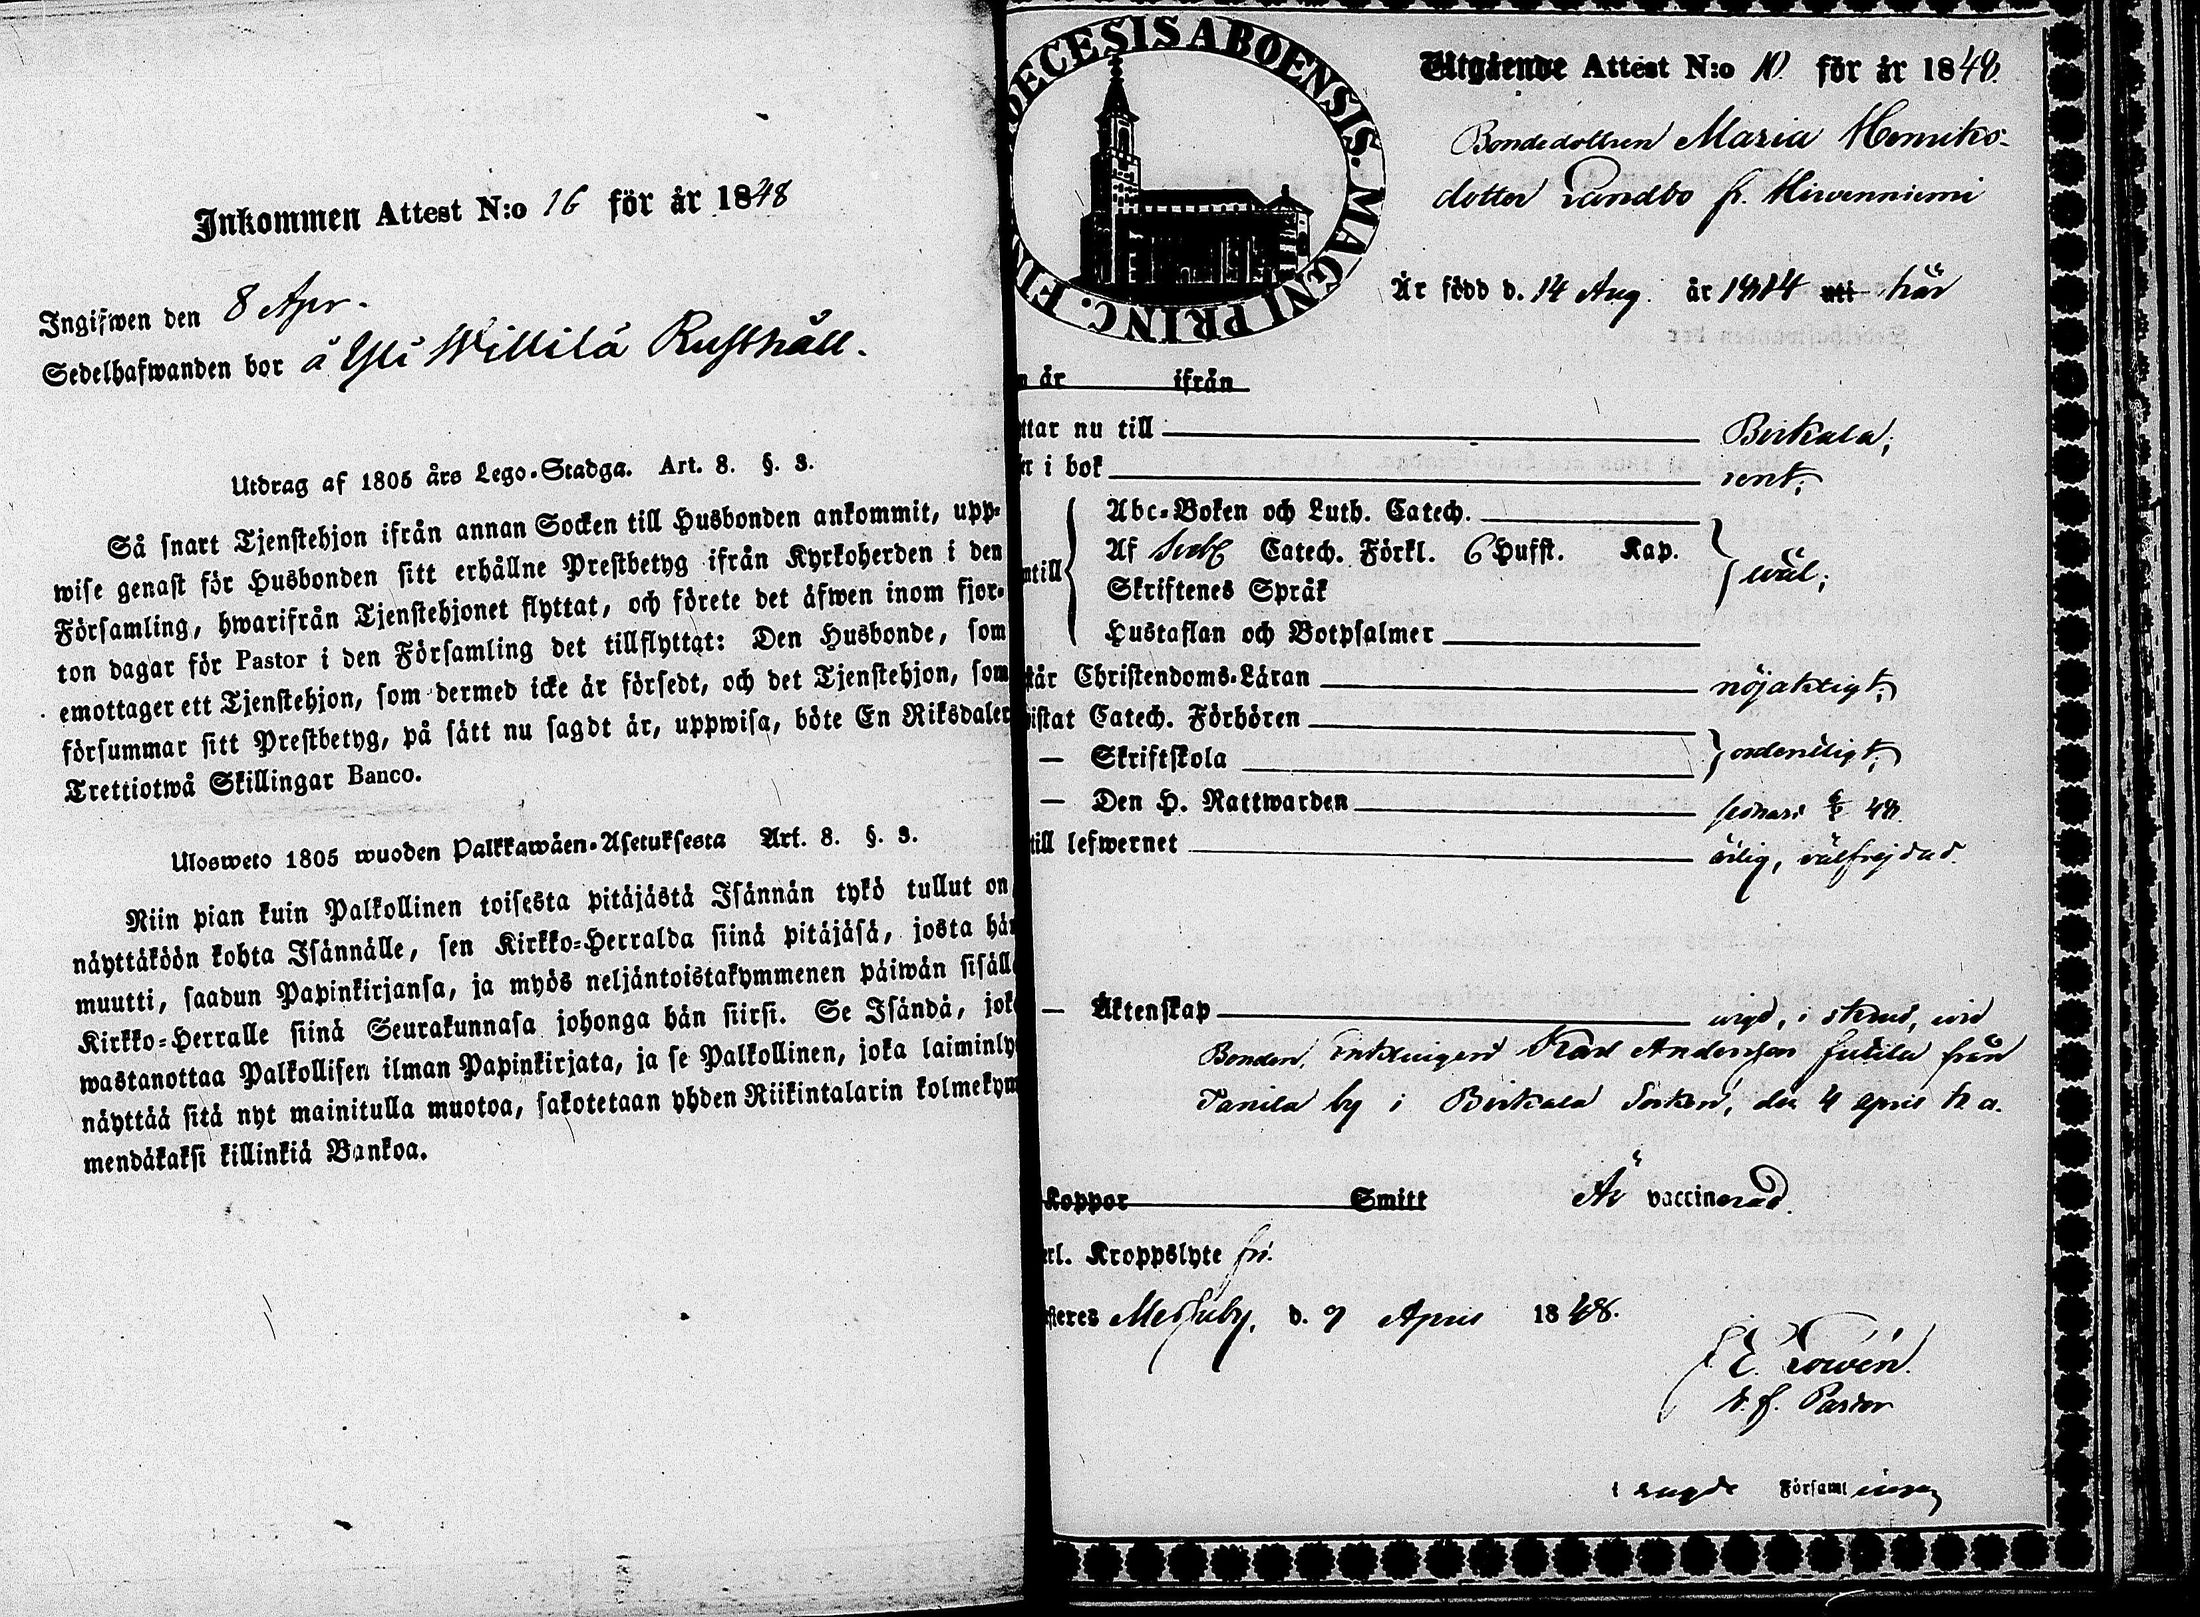 Inkommen Attest N:o 16 för år 1848
Ingifwen den 8 Apr.
Sedelhafwanden bor å Yli Willilä Rusthåll.
Utdrag af 1805 års Lego-Stadga. Art. 8. §. 3.
Så snart Tjenstehjon ifrån annan Socken till Husbonden ankommit, upp-
wise genast för Husbonden sitt erhållne Prestbetyg ifrån Kyrkoherden i den
Församling, hwarifrån Tjenstehjonet flyttat, och förete det äfwen inom fjor-
ton dagar för Pastor i den Församling det tillflyttat: Den Husbonde, som
emottager ett Tjenstehjon, som dermed icke är försedt, och det Tjenstehjon, som
försummar sitt Prestbetyg, på sätt nu sagdt är, uppwisa, böte En Riksdaler
Trettiotwå Skillingar Banco.
Ulosweto 1805 wuoden Palkkawäen-Asetuksesta Art. 8. §. 3.
Niin pian kuin Palkollinen toisesta pitäjästä Isännän tykö tullut on
näyttäköön kohta Isännälle, sen Kirkko-Herralda siinä pitäjäsä, josta hän
muutti, saadun Papinkirjansa, ja myös neljäntoistakymmenen päiwän sisäll
Kirkko-Herralle siinä Seurakunnasa johonga hän siirsi. Se Isändä, jok
wastanottaa Palkollisen ilman Papinkirjata, ja se Palkollinen, joka laiminly
näyttää sitä nyt mainitulla muotoa, sakotetaan yhden Riikintalarin kolmekym
mendäkaksi killinkiä Bankoa.
DECESIS ABOENSIS. MAGNI PRINC. FIN
Utgående Attest N:o 10. för år 1848.
Bondedottren Maria Henriks-
dotter Landbo fr. Hirwenniemi
Är född d. 14 Aug. år 1814 uti här
n år ifrån
ttar nu till Birkala;
er i bok rent;
Abc-Boken och Luth. Catech.
Af Sveb. Catech. Förkl. 6 Hufst. Kap.
ntill wäl;
Skriftenes Språk
Hustaflan och Botpsalmer
står Christendoms-Läran nöjaktigt;
istat Catech. Förhören
— Skriftskola ordentligt;
— Den H. Nattwarden senast 48.
till lefwernet ärlig, välfrejdad.
— Äktenskap wigd, i stånd, wid
Bonden, Enklingen Karl Andersson från
Tanila by i Birkala Socken, den 4 April h. a.
Koppor Smitt Är vaccinerad.
erl. Kroppslyte fri.
steres Messuby, d. 9 April 1848.
E. Lowén.
v. f. Pastor
i sagde Församlingen